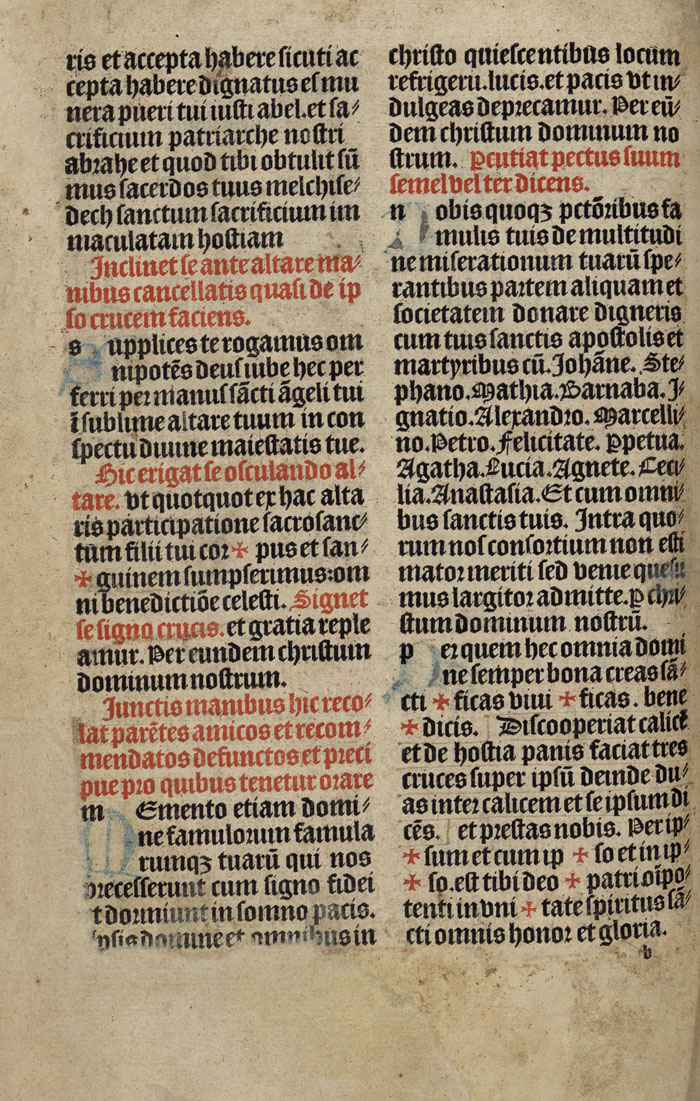 ris et accepta habere sicuti ac
cepta habere dignatus es mu
nera pueri tui iusti abel.et sa⸗
crificium patriarche nostri
abrahe et quod tibi obtulit sū
mus sacerdos tuus melchise⸗
dech sanctum sacrificium im
maculatam hostiam
Inclinet se ante altare ma⸗
nibus cancellatis quasi de ip
so crucem faciens.
s upplices te rogamus om
nipotēs deus iube hec per
ferri per manus sācti āgeli tui
ī sublime altare tuum in con
spectu diuine maiestatis tue.
Hic erigat se osculando al⸗
tare. vt quotquot ex hac alta
ris participatione sacrosanc⸗
tūm filii tui cor ✠ pus et san⸗
✠ guinem sumpserimus:om
ni benedictiōe celesti. Signet
se signo crucis. et gratia reple
amur. Per eundem christum
dominum nostrum.
Iunctis manibus hic reco⸗
lat parētes amicos et recom⸗
mendatos defunctos et preci
pue pro quibus tenetur orare
m Emento etiam domi⸗
ne famulorum famula
rumqꝫ tuarū qui nos
precesserunt cum signo fidei
t dormiunt in somno pacis.
ipsis domine et omnibus in
christo quiescentibus locum
refrigerii.lucis.et pacis vt in⸗
dulgeas deprecamur. Per eū⸗
dem christum dominum no
strum. ꝑcutiat pectus suum
semel vel ter dicens.
n obis quoqꝫ pctōribus fa
mulis tuis de multitudi
ne miserationum tuarū spe⸗
rantibus partem aliquam et
societatem donare digneris
cum tuis sanctis apostolis et
martyribus cū. Johāne. Ste⸗
phano. Mathia. Barnaba. J⸗
gnatio. Alexandro. Marcelli⸗
no. Petro. Felicitate. Ꝑpetua.
Agatha. Lucia. Agnete. Ceci⸗
lia. Anastasia. Et cum omni⸗
bus sanctis tuis. Intra quo⸗
rum nos consortium non esti
mator meriti sed venie quesu
mus largitor admitte. ꝑ chri⸗
stum dominum nostrū.
p er quem hec omnia domi
ne semper bona creas sā⸗
cti ✠ ficas viui ✠ ficas. bene
✠ dicis. Discooperiat calicē
et de hostia panis faciat tres
cruces super ipsū deinde du⸗
as inter calicem et se ipsum di
cēs. et prestas nobis. Per ip⸗
✠ sum et cum ip ✠ so et in ip⸗
✠ so.est tibi deo ✠ patri oīpo⸗
tenti in vni ✠ tate spiritus sā⸗
cti omnis honor et gloria.
b